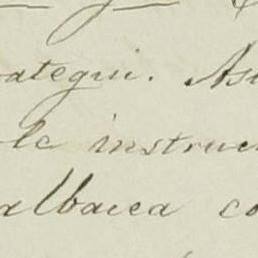 ategui. As
le instruc
albacea co